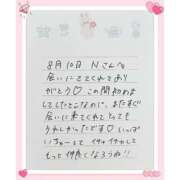 8月10日 Nさんへ
会いにきてくれてあり
がとう♡ この間初めま
してしたとこなのに、またすぐ
会いに来てくれて、とっても
うれしかったです♡ いっぱい
いちゅーして イチャイチャして
もっと仲良くなろうね!!